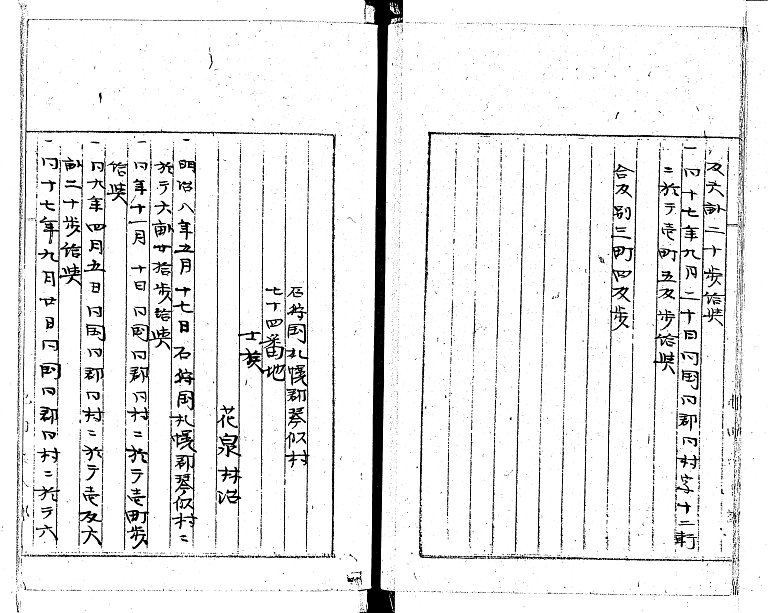 反六畝二十歩給與
一同十七年九月二十日同国同郡同村字十二軒
ニ於テ壱町五反歩給與
合反別三町四反歩
石狩国札幌郡琴似村
七十四番地
士族
花泉林治
一明治八年五月十七日石狩国札幌郡琴似村ニ
於テ六畝廿拾歩給與
一同年十一月十日同国同郡同村ニ於テ壱町歩
給與
一同九年四月五日同国同郡同村ニ於テ壱反六
畝二十歩給與
一同十七年九月廿日同国同郡同村ニ於テ六